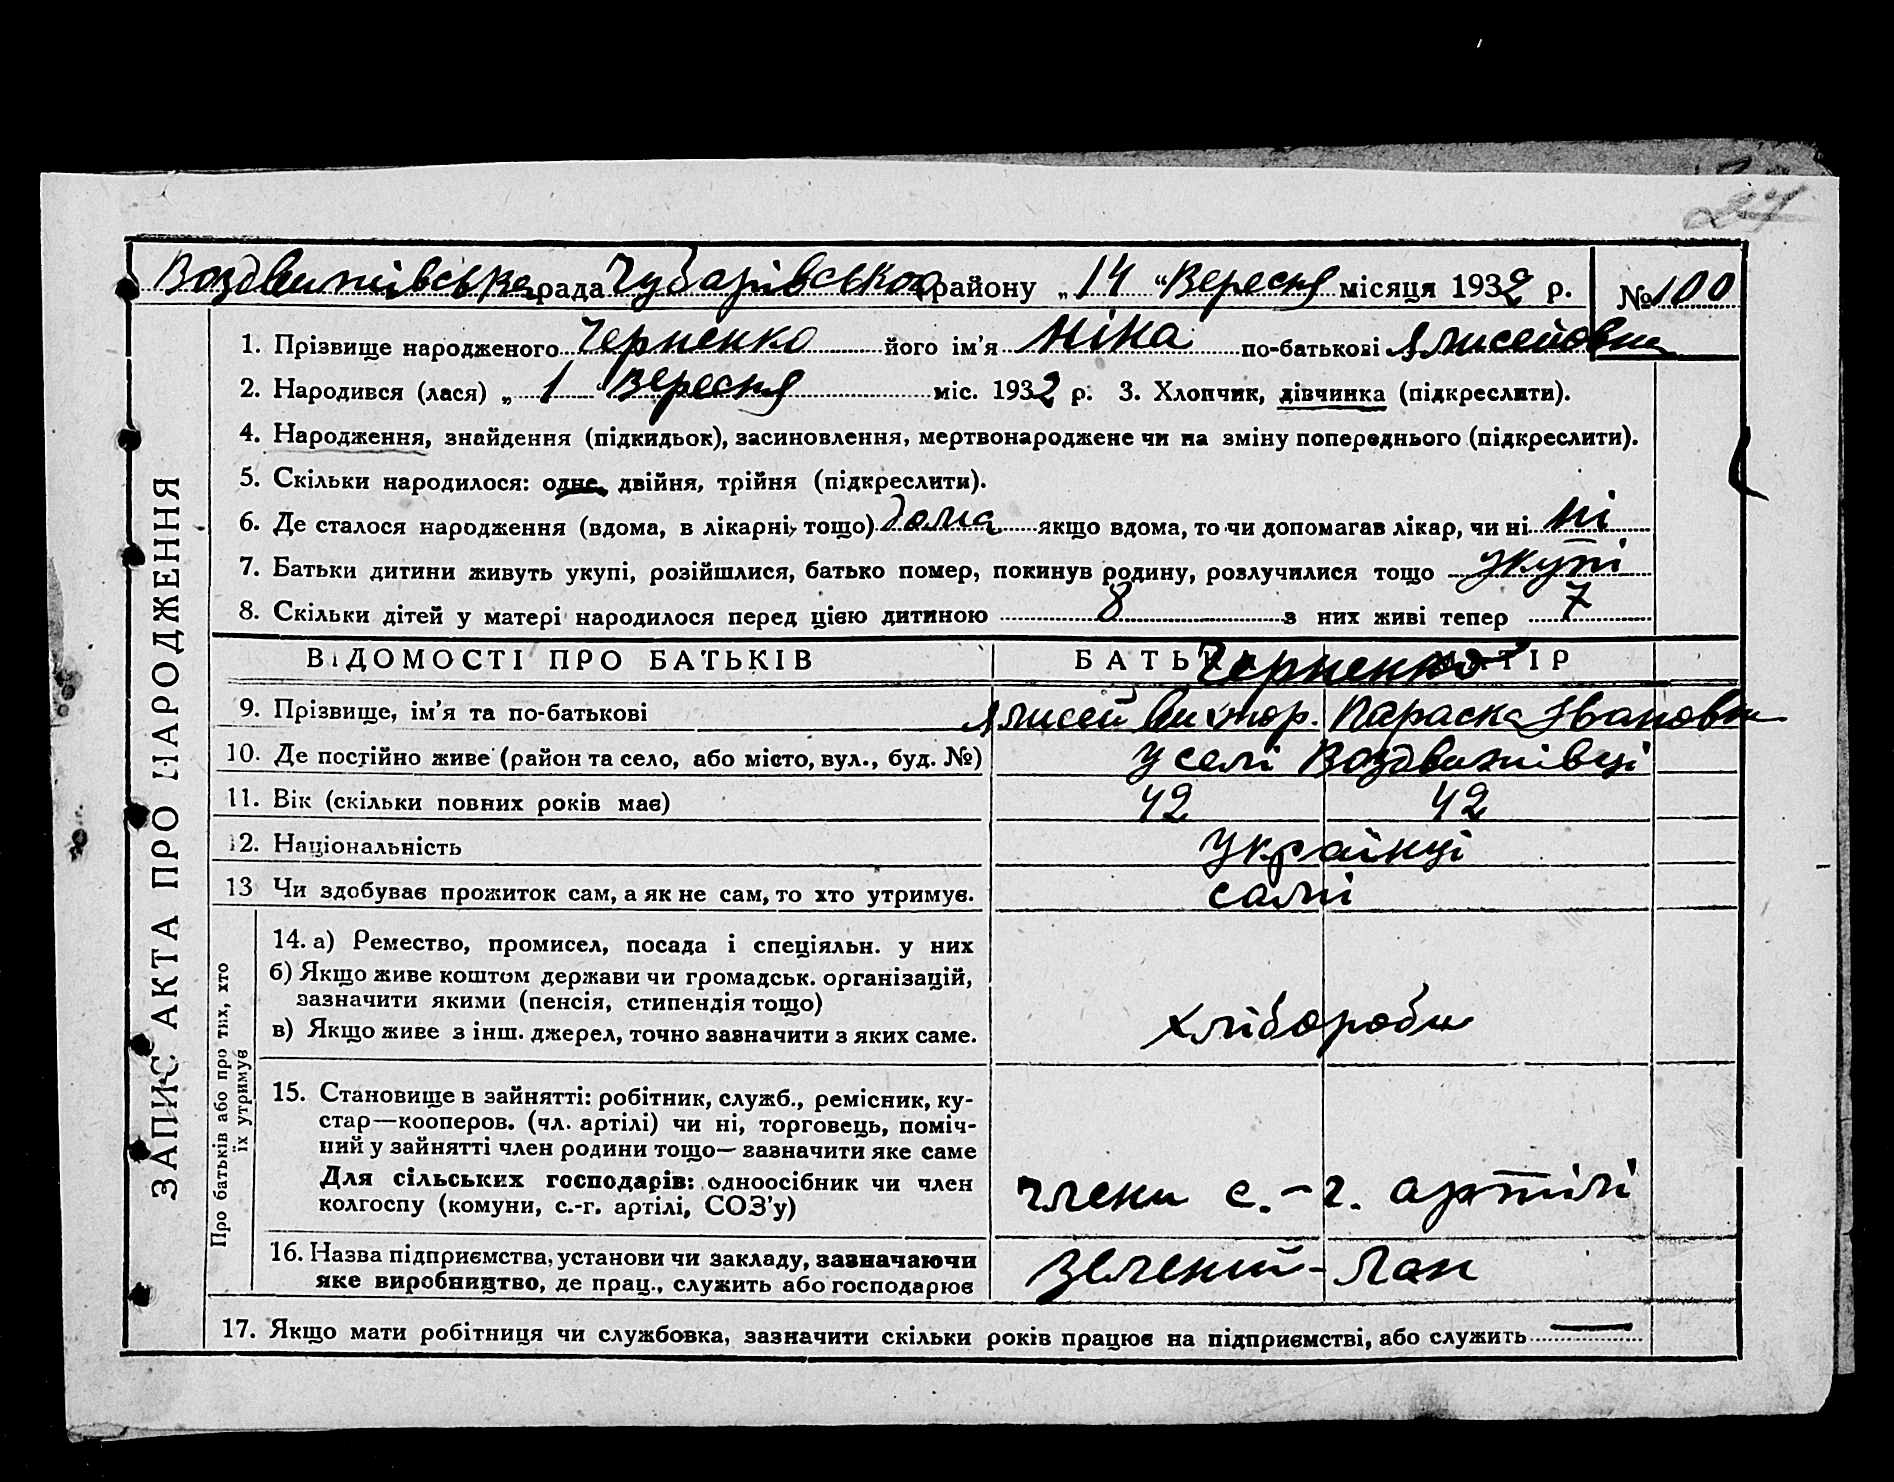 27
Воздвижівська рада Чубарівського району „14“ Вересня місяця 1932 р. № 100
1. Прізвище народженого Черненко його ім'я Ніна по-батькові
2. Народився (лася) „ 1 " Вересня міс. 1932 р. 3. Хлопчик, дівчинка (підкреслити).
4. Народження, знайдення (підкидьок), засиновлення, мертвонароджене чи на зміну попереднього (підкреслити).
5. Скільки народилося: одне, двійня, трійня (підкреслити).
6. Де сталося народження (вдома, в лікарні, тощо) дома якщо вдома, то чи допомагав лікар, чи ні ні
7. Батьки дитини живуть укупі, розійшлися, батько помер, покинув родину, розлучилися тощо укупі
8. Скільки дітей у матері народилося перед цією дитиною 8 з них живі тепер 7
ВІДОМОСТІ ПРО БАТЬКІВ БАТЬКО МАТІР
Черненко
9. Прізвище, ім'я та по-батькові Параска Івановна
10. Де постійно живе (район та село, або місто, вул., буд. №) у селі Воздвижівці
11. Вік (скільки повних років має) 42 42
12. Національність Українці
13 Чи здобуває прожиток сам, а як не сам, то хто утримує. самі
14. а) Ремество, промисел, посада і спеціяльн. у них
б) Якщо живе коштом держави чи громадськ. організацій,
зазначити якими (пенсія, стипендія тощо)
в) Якщо живе з інш. джерел, точно зазначити з яких саме. хлібороби
15. Становище в зайнятті: робітник, служб., ремісник, ку-
стар—кооперов. (чл. артілі) чи ні, торговець, поміч-
ний у зайнятті член родини тощо— зазначити яке саме
Для сільських господарів: одноосібник чи член
колгоспу (комуни, с.-г. артілі, СОЗ'у) члени с.-г. артілі
16. Назва підприємства, установи чи закладу, зазначаючи
яке виробництво, де прац., служить або господарює Зелений-Лан
17. Якщо мати робітниця чи службовка, зазначити скільки років працює на підприємстві, або служить —
ЗАПИС АКТА ПРО НАРОДЖЕННЯ
Про батьків або про тих, хто
їх утримує